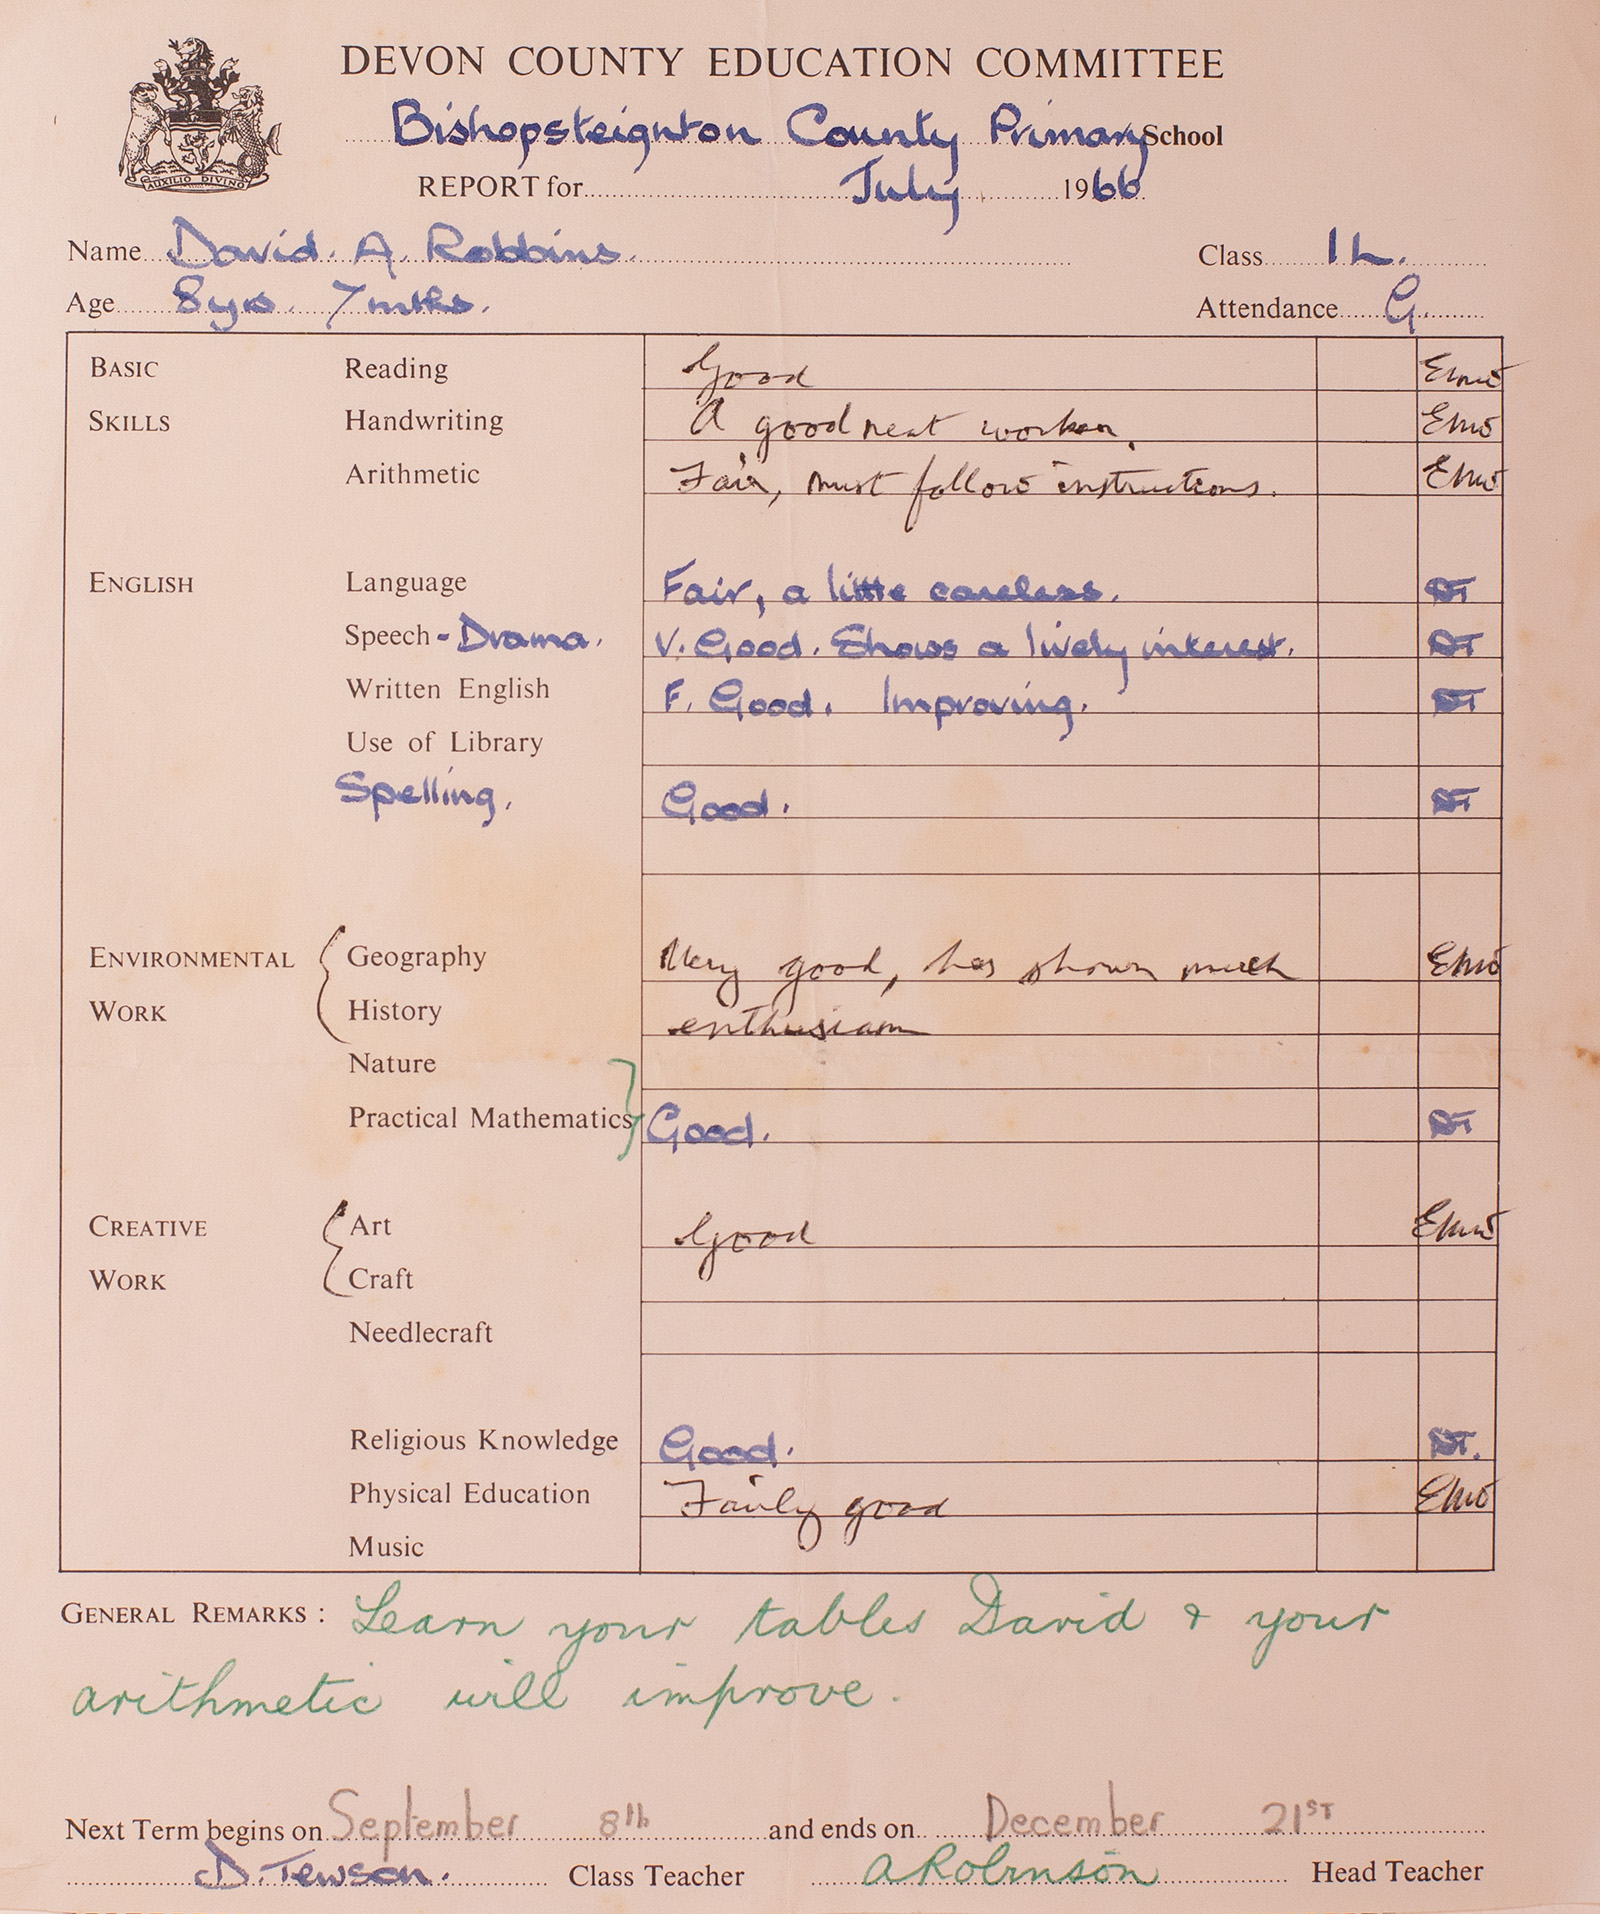 DEVON COUNTY EDUCATION COMMITTEE
Bishopsteignton County Primary School
AUXILIO DIVINO
REPORT for July 1966
Name David. A. Robbins. Class 1L.
Age 8yrs. 7mths. Attendance G.
BASIC Reading Good EMW
SKILLS Handwriting A good neat worker. EMW
Arithmetic Fair, must follow instructions. EMW
ENGLISH Language Fair, a little careless. DT
Speech - Drama. V. Good. Shows a lively interest. DT
Written English F. Good. Improving. DT
Use of Library
Spelling. Good. DT
ENVIRONMENTAL Geography Very good, has shown much EMW
WORK History enthusiasm
Nature
Practical Mathematics Good. DT
CREATIVE Art Good EMW
WORK Craft
Needlecraft
Religious Knowledge Good. DT.
Physical Education Fairly good EMW
Music
GENERAL REMARKS : Learn your tables David & your
arithmetic will improve.
Next Term begins on September 8th and ends on December 21ST
D. Tewson. Class Teacher A Robinson Head Teacher